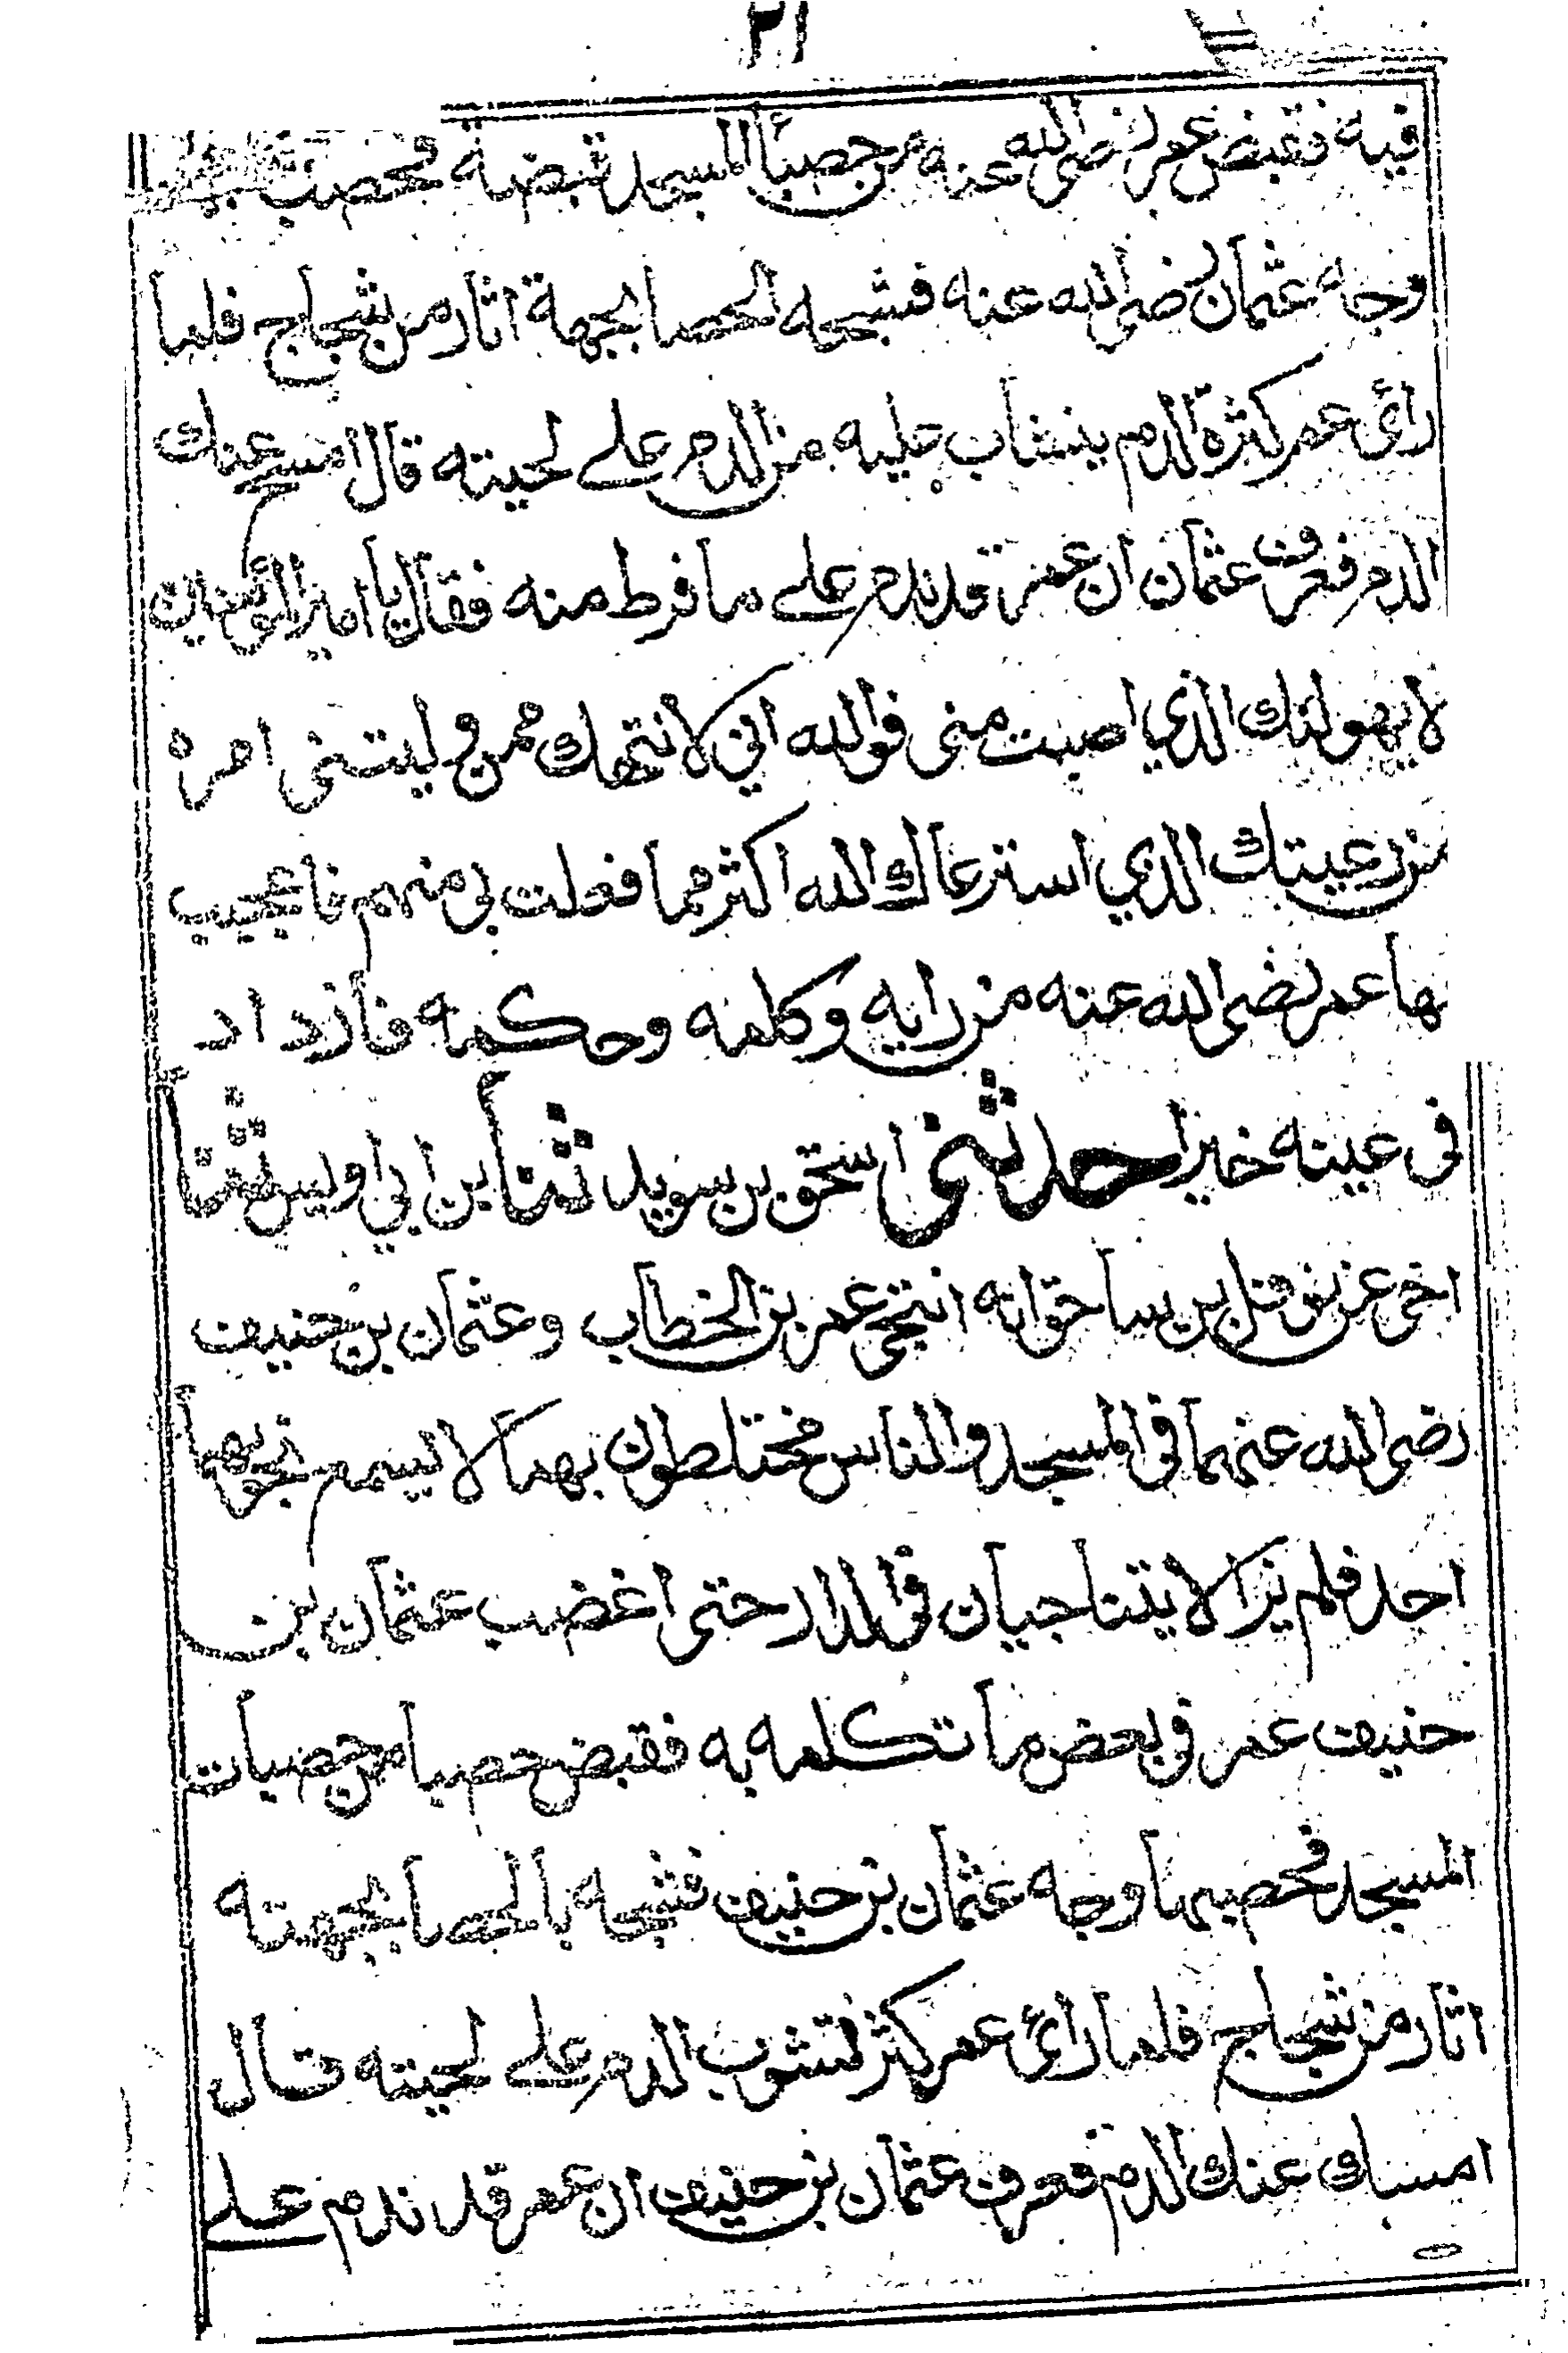 ٢١
فيه فقبض عمر رضى الله عنه من حصبا المسجد قبضة فحصب بها
وجه عثمان رضى الله عنه فشجه الحصا بجبهة اثار من شجاج فلما
رائ عمر كثرة الدم ينشاب عليه من الدم على لحيته قال امسح عنك
الدم فعرف عثمان ان عمر قد ندم على ما فرط منه فقال يا امير المؤمنين
لا يهولنك الذي اصبت منى فوالله اني لانتهك ممن وليتنى امره
من رعيتك الذي استرعاك الله اكثر مما فعلت بى منهم فاعجب
بها عمر رضى الله عنه من رايه وكلمه وحكمه فازداد
فى عينه خيرا حدثنى اسحق بن سويد ثنا بن ابي اويس ثنا
اخى عن نوفل بن مساحق انه انتجى عمر بن الخطاب وعثمان بن حنيف
رضى الله عنهما فى المسجد والناس مختلطون بهما لا يسمع نجويهما
احد فلم يزالا يتناجيان فى الدار حتى اغضب عثمان بن
حنيف عمر فى بعض ما تكلمه به فقبض حصبا من حصبات
المسجد فحصب بها وجه عثمان بن حنيف فشجه بالحصا بجبهته
اثار من شجاج فلما رائ عمر كثر تشوب الدم على لحيته قال
امسك عنك الدم فعرف عثمان بن حنيف ان عمر قد ندم على